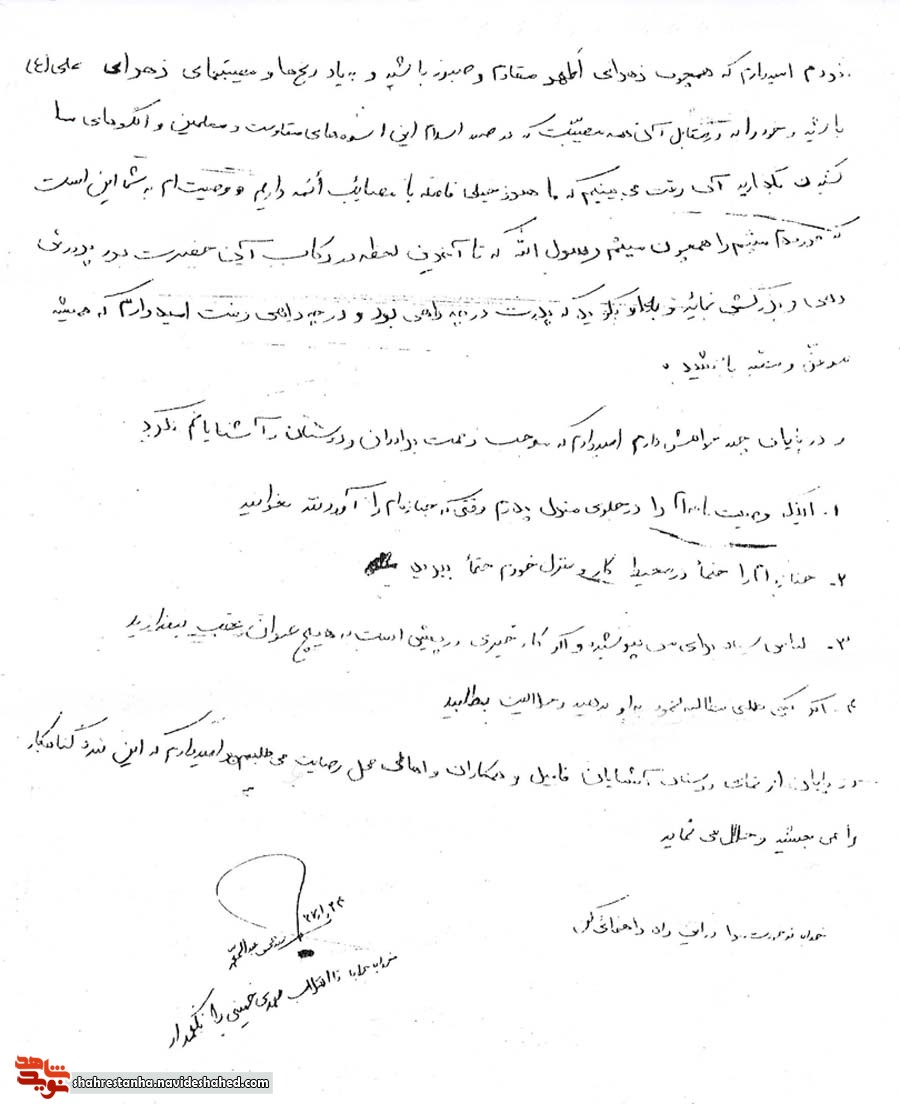 خودم امیدوارم که همچون زهرای اطهر مقاوم و صبور باشید و به یاد رنجها و مصیبتهای زهرای علی (ع)
باشید و خود را در مقابل آن همه مصیبت که در صدر اسلام این اسوه‌های مقاومت و معلمین و الگوهای ما
کشیدن بگذارید آن وقت می‌بینیم که ما هنوز خیلی فاصله با مصائب ائمه داریم و وصیت‌ام به شما این است
که را همچون میثم رسول الله که تا آخرین لحظه در رکاب آن حضرت بود پرورش
دهی و بزرگش نمائید و به او بگوئید که پدرت در چه راهی بود و در چه راهی رفت امیدوارم که همیشه
موفق و باشید.
و در پایان چند خواهش دارم امیدوارم که موجب زحمت برادران و دوستان و آشنایانم نگردد
۱. اینکه وصیت نامه‌ام را در جلوی منزل پدرم وقتی که جنازه‌ام را آوردند بخوانید
۲- جنازه‌ام را حتماً در محیط کار و منزل خودم حتماً ببرید
۳- لباس سیاه برای من نپوشید و اگر کار خیری در پیش است به هیچ عنوان عقب نیندازید
۴. اگر کسی طلبی مطالبه نمود به او بدهید و حلالیت بطلبید
در پایان از تمامی دوستان آشنایان فامیل و همکاران و اهالی محل رضایت می‌طلبم و امیدوارم که این بنده گناهکار
را می بخشید و حلال می نمائید
خدایا خودت ما را در این راه راهنمائی کن
خدایا خدایا تا انقلاب مهدی خمینی را نگهدار
شاهد
نوید
shahrestanha.navideshahed.com